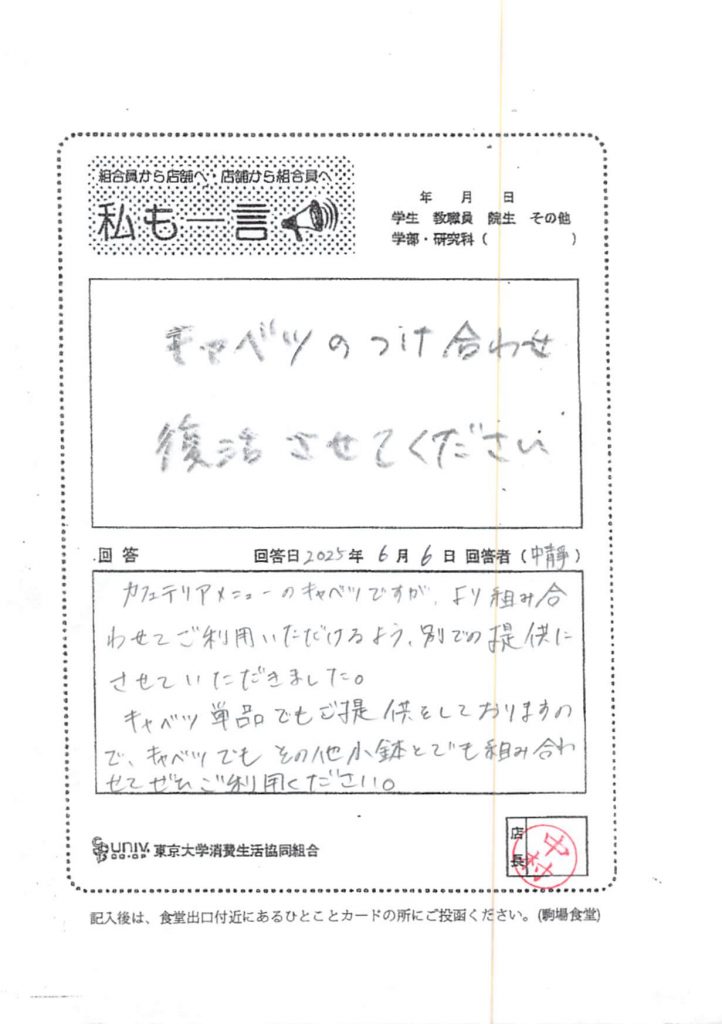 組合員から店舗へ・店舗から組合員へ
私も一言
年 月 日
学生 教職員 院生 その他
学部・研究科( )
キャベツのつけ合わせ
復活させてください
回答 回答日2025年6月6日 回答者(中静)
カフェテリアメニューのキャベツですが、より組み合
わせてご利用いただけるよう、別での提供に
させていただきました。
キャベツ単品でもご提供をしておりますの
で、キャベツでもその他小鉢とでも組み合わ
せてぜひご利用ください。
UNIV. CO-OP 東京大学消費生活協同組合
店長 中村
記入後は、食堂出口付近にあるひとことカードの所にご投函ください。(駒場食堂)